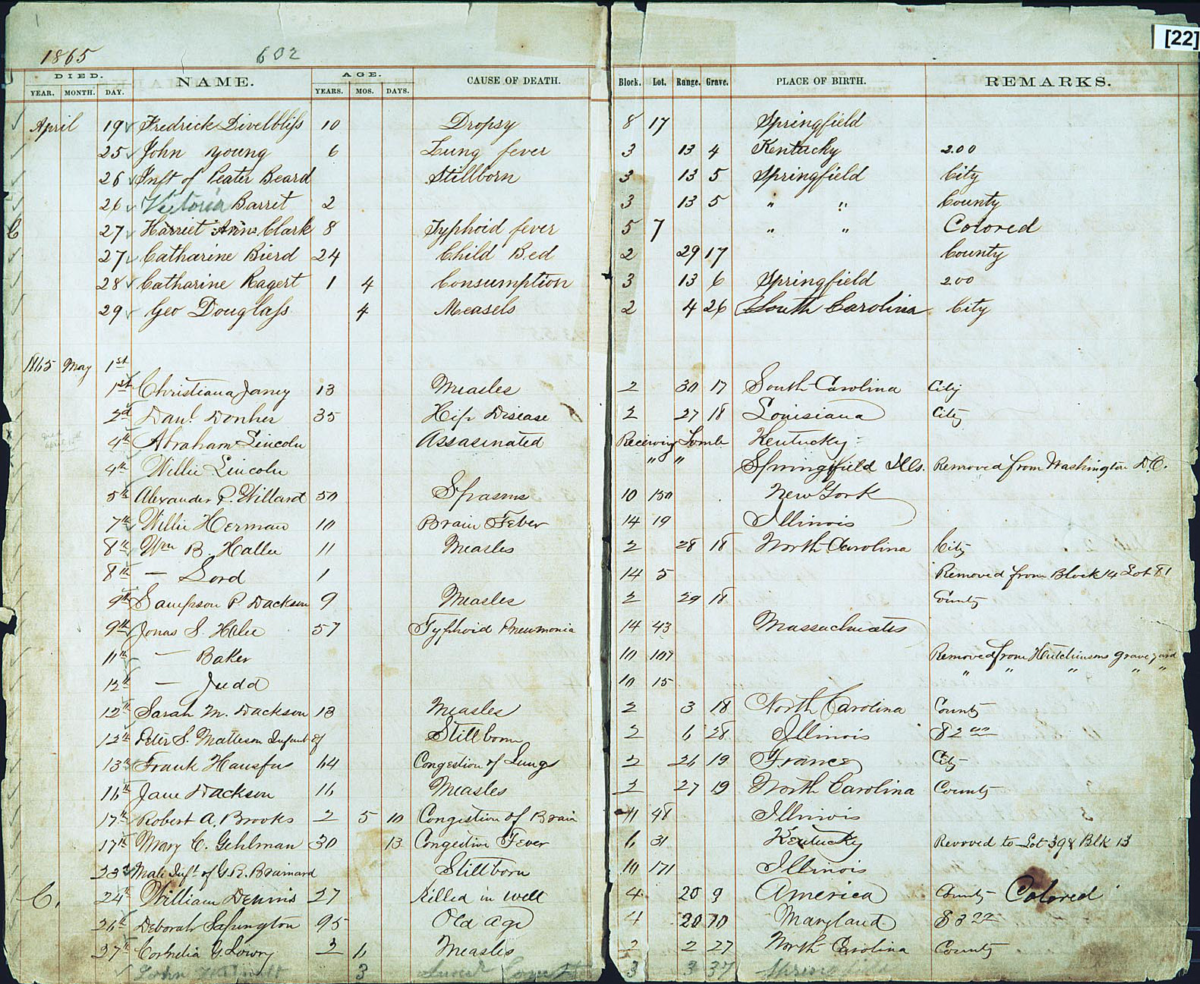 [22]
1865 602
DIED. AGE.
YEAR. MONTH. DAY. NAME. YEARS. MOS. DAYS. CAUSE OF DEATH. Block. Lot. Range. Grave. PLACE OF BIRTH. REMARKS.
April 19 Fredrick Divelbliss 10 Dropsy 8 17 Springfield
25 John young 6 Lung fever 3 13 4 Kentucky 2.00
26 Inft of Peater Beard Stillborn 3 13 5 Springfield City
26 Victoria Barrit 2 3 13 5 " " County
C 27 Harriet Ann Clark 8 Typhoid fever 5 7 " " Colored
27 Catharine Bierd 24 Child Bed 2 29 17 County
28 Catharine Ragert 1 4 Consumption 3 13 6 Springfield 200
29 Geo Douglass 4 Measels 2 4 26 South Carolina City
1865 May 1st
1st Christiana Janey 13 Measles 2 30 17 South Carolina City
2d Danl Donher 35 Hip Disease 2 27 18 Louisiana City
4th Abraham Lincoln Assasinated Receiving Tomb Kentucky
4th Willie Lincoln " " Springfield Ills. Removed from Washington D.C.
5th Alexander P. Willard 50 Spasms 10 130 New York
7th Willie Herman 10 Brain Fever 14 19 Illinois
8th Wm B. Hallee 11 Measles 2 28 18 North Carolina City
8th — Lord 1 14 5 Removed from Block 14 Lot 81
9th Sampson P. Dackson 9 Measles 2 29 18 County
9th Jonas S. 57 Typhoid Pneumonia 14 43 Massachusetts
11th — Baker 10 107 Removed from Hutchinsons graveyard
12th — Judd 10 15 " " " "
12th Sarah M. Dackson 18 Measles 2 3 18 North Carolina County
12th Peter S. Matteson Infant of Stillborn 2 6 28 Illinois $2.00
13th Frank Hausfus 64 Congestion of Lungs 2 26 19 France City
16th Jane Dackson 16 Measles 2 27 19 North Carolina County
17th Robert A. Brooks 2 5 10 Congestion of Brain 11 48 Illinois
17th Mary C. Gehlman 30 13 Congestive Fever 6 31 Kentucky Revoved to Lot 398 Blk 13
23d Male Inft. of G.R. Brainard Stillborn 10 171 Illinois
C. 24th William Dennis 27 Killed in well 4 20 9 America County Colored
26th Deborah Sapington 95 Old age 4 20 70 Maryland $3.00
27th Cornelia G. Lowry 2 6 Measles 2 2 27 North Carolina County
John 3 3 3 37 Springfield